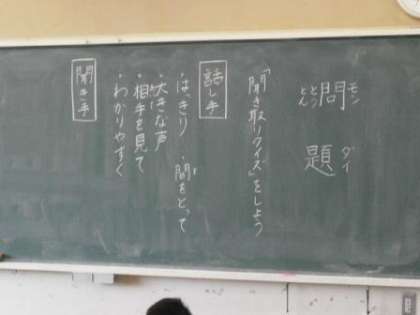 問題
モン
ダイ
とう
とん
「聞き取りクイズ」をしよう
話し手
・はっきり ・間をとって
ま
・大きな声
・相手を見て
・わかりやすく
聞き手